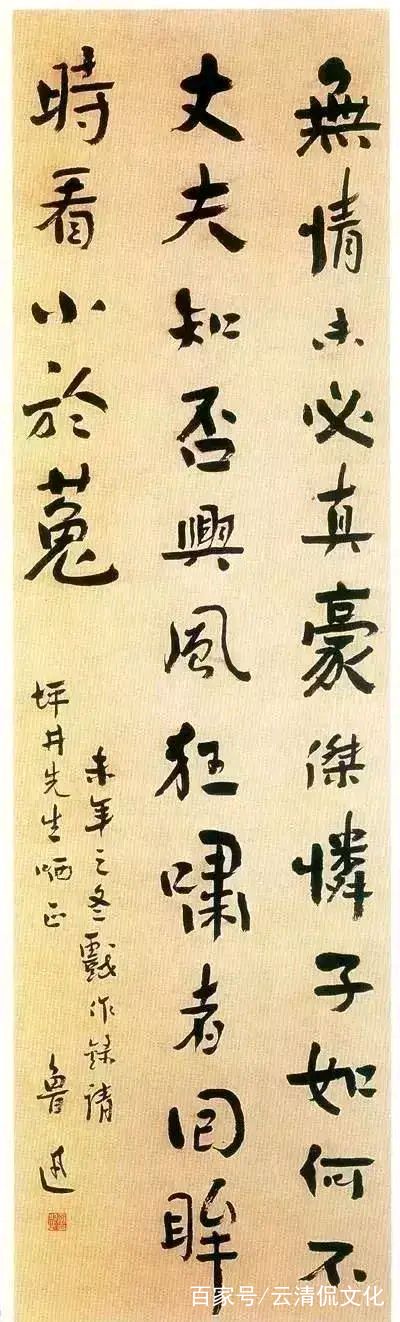 無情未必真豪傑憐子如何不
丈夫知否興風狂嘯者回眸
時看小於菟
未年之冬戲作錄請
坪井先生哂正
魯迅
百家号/云清侃文化